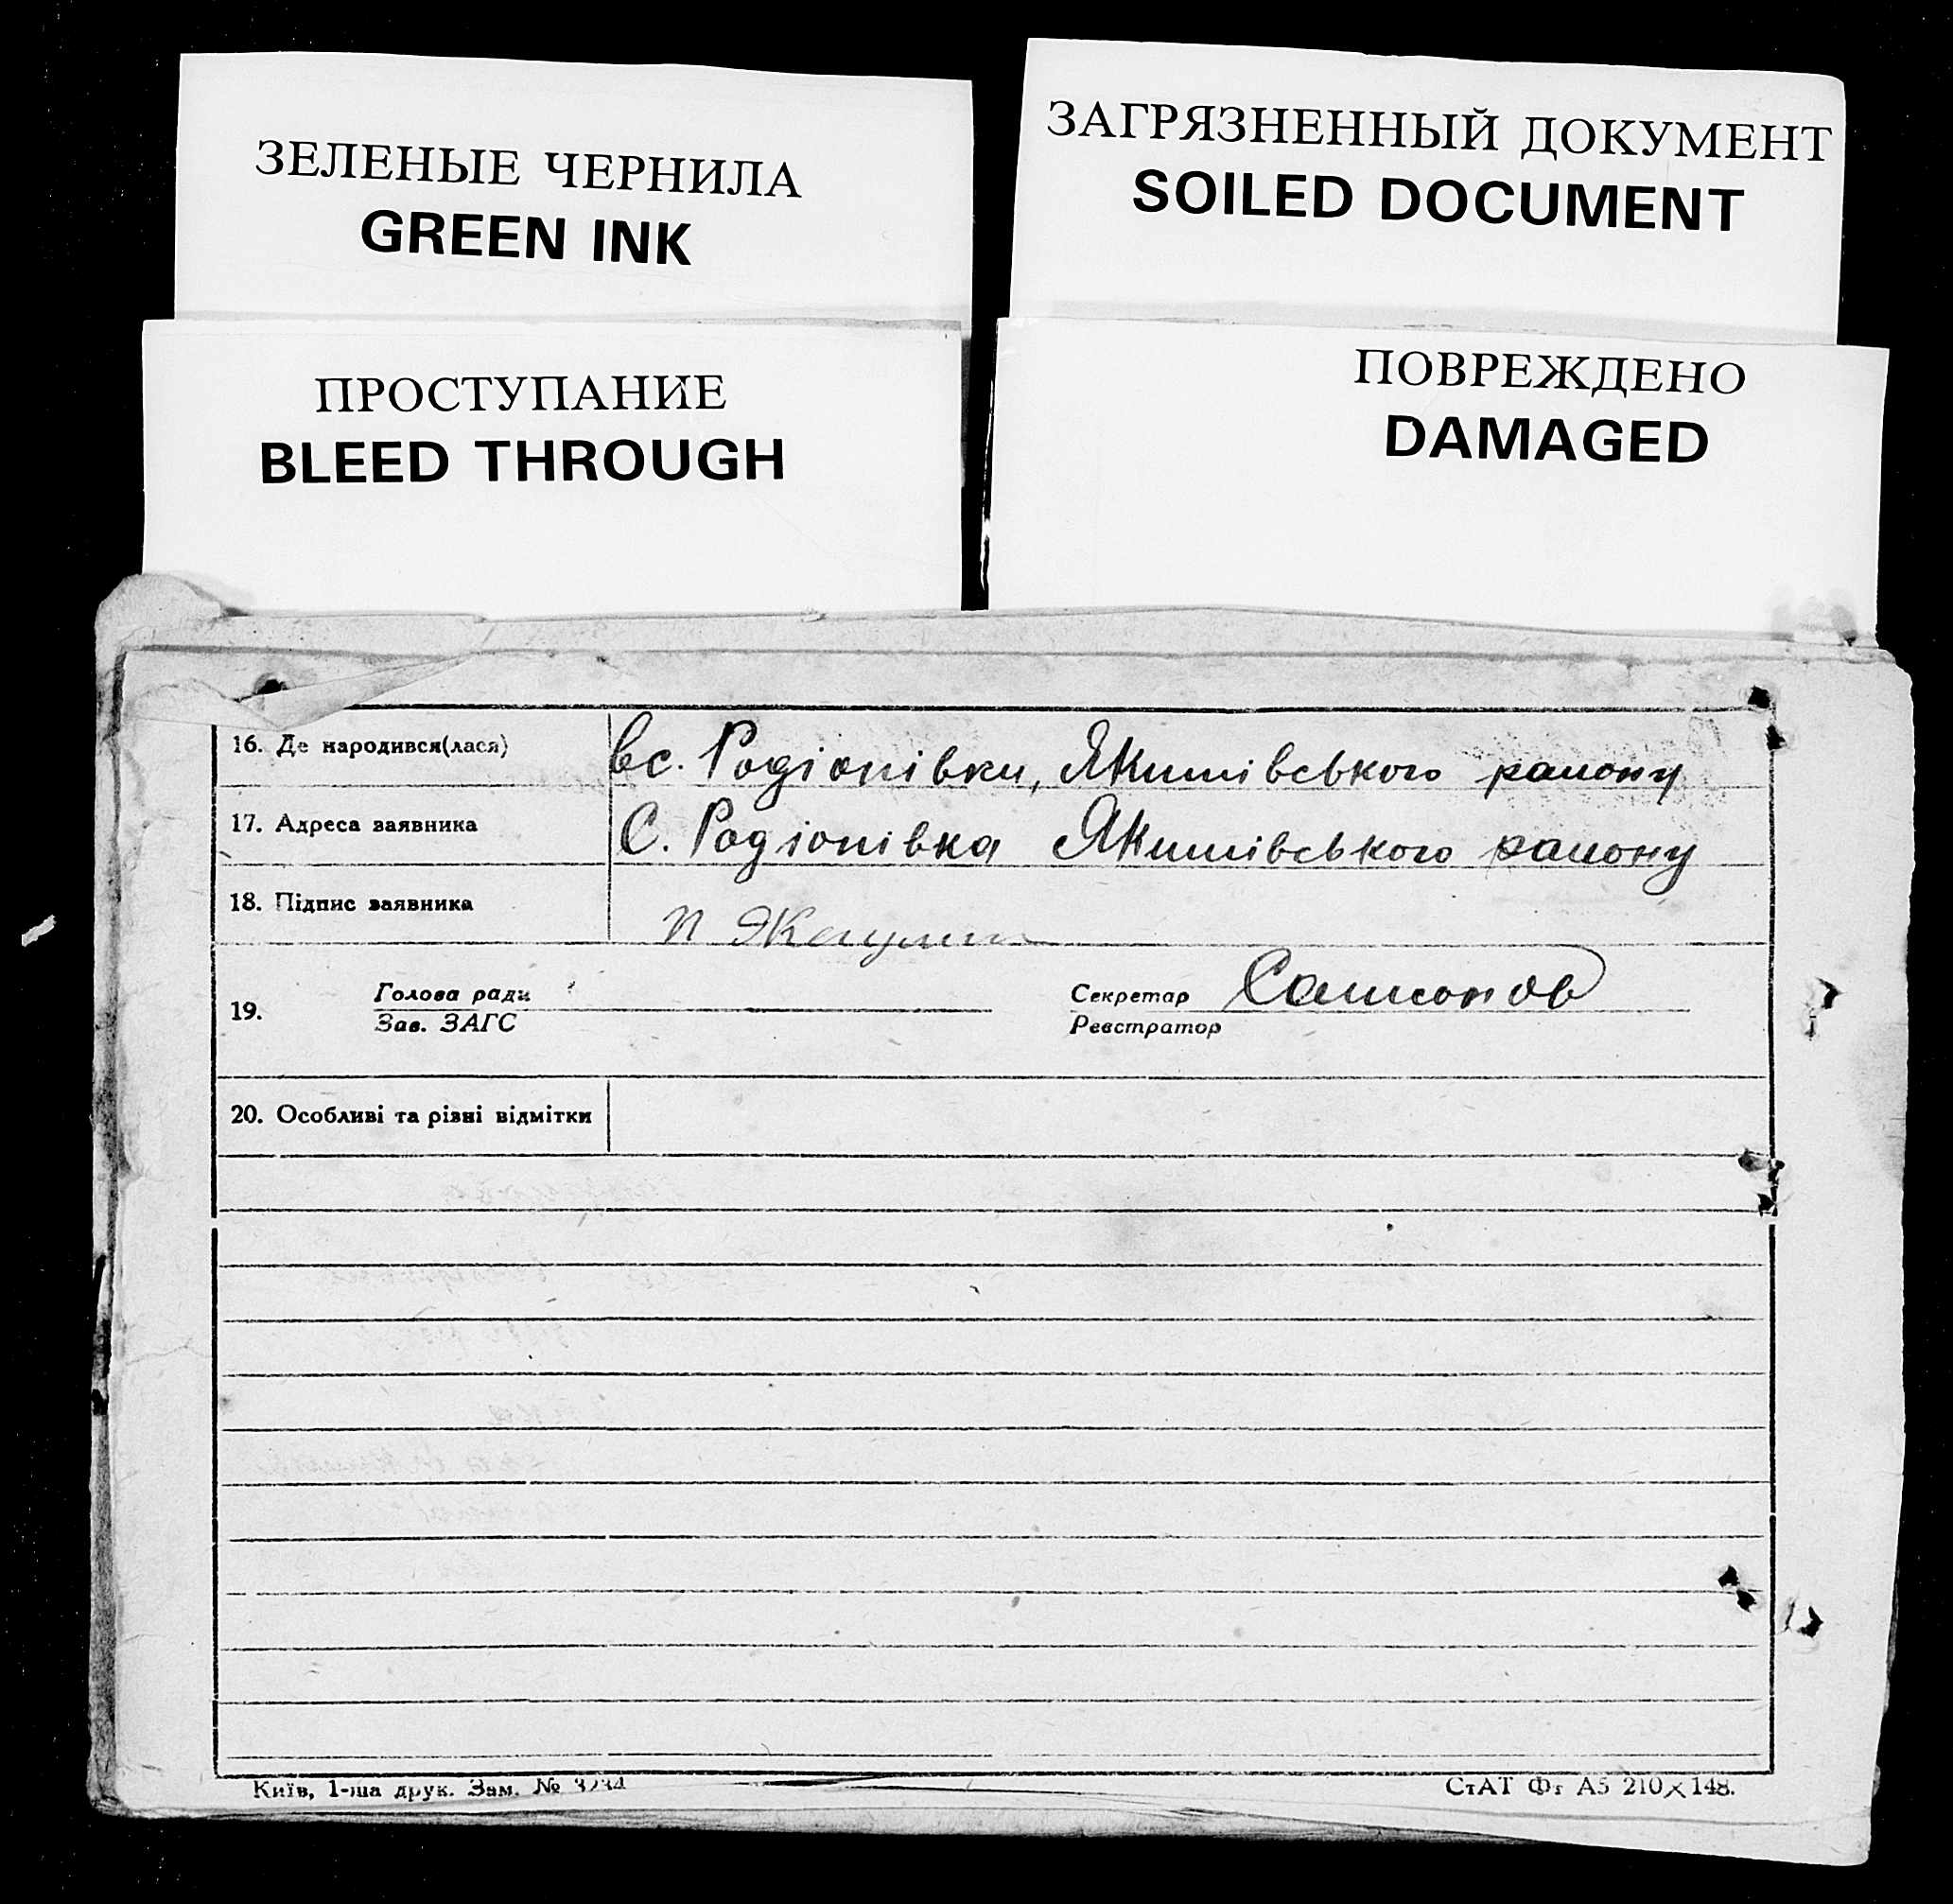 ЗЕЛЕНЫЕ ЧЕРНИЛА
GREEN INK
ЗАГРЯЗНЕННЫЙ ДОКУМЕНТ
SOILED DOCUMENT
ПРОСТУПАНИЕ
BLEED THROUGH
ПОВРЕЖДЕНО
DAMAGED
16. Де народився(лася) в с. Родіонівки, Якимівського району
17. Адреса заявника С. Родіонівка Якимівського району
18. Підпис заявника
19. Голова ради Секретар Самсонов
Зав. ЗАГС Реєстратор
20. Особливі та різні відмітки
Київ, 1-ша друк. Зам. № СтАТ Фт А5 210×148.